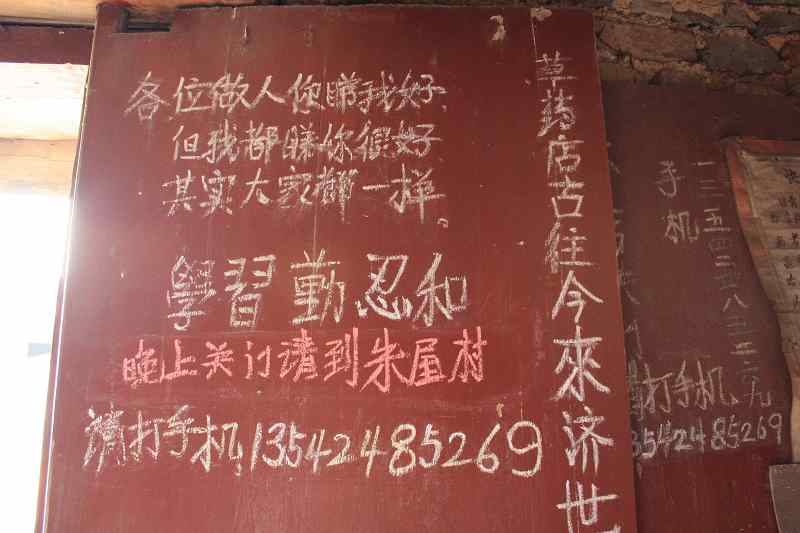 各位做人你睇我好
但我都睇你很好
其实大家都一样。
學習勤忍和
晚上关门请到朱屋村
请打手机13542485269
草药店古往今來济世
手机
请打手机
3542485269